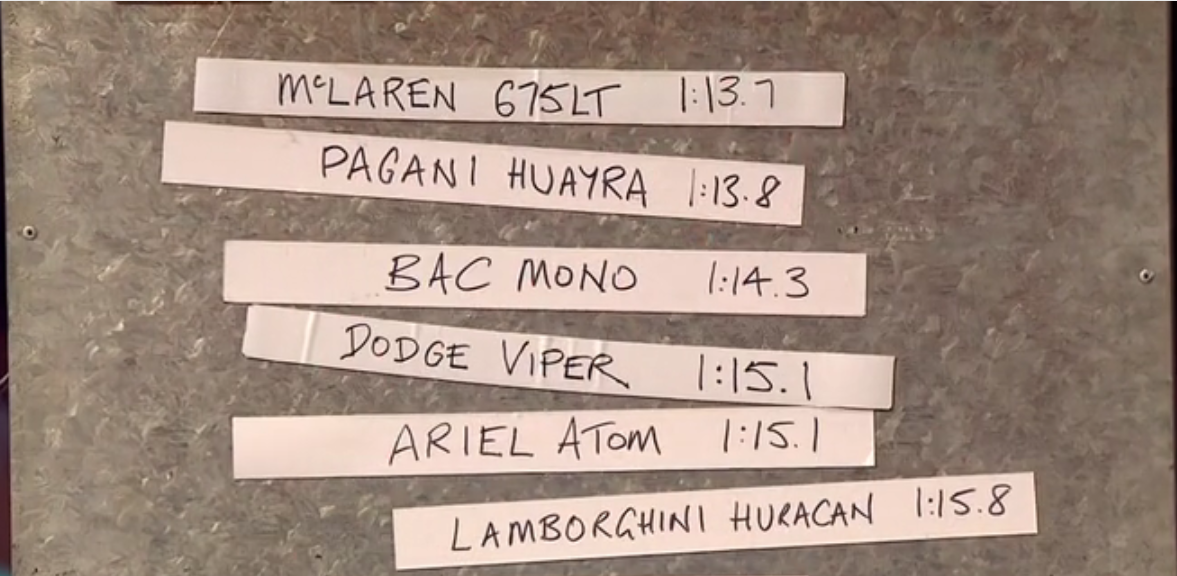 McLAREN 675LT 1:13.7
PAGANI HUAYRA 1:13.8
BAC MONO 1:14.3
DODGE VIPER 1:15.1
ARIEL ATOM 1:15.1
LAMBORGHINI HURACAN 1:15.8